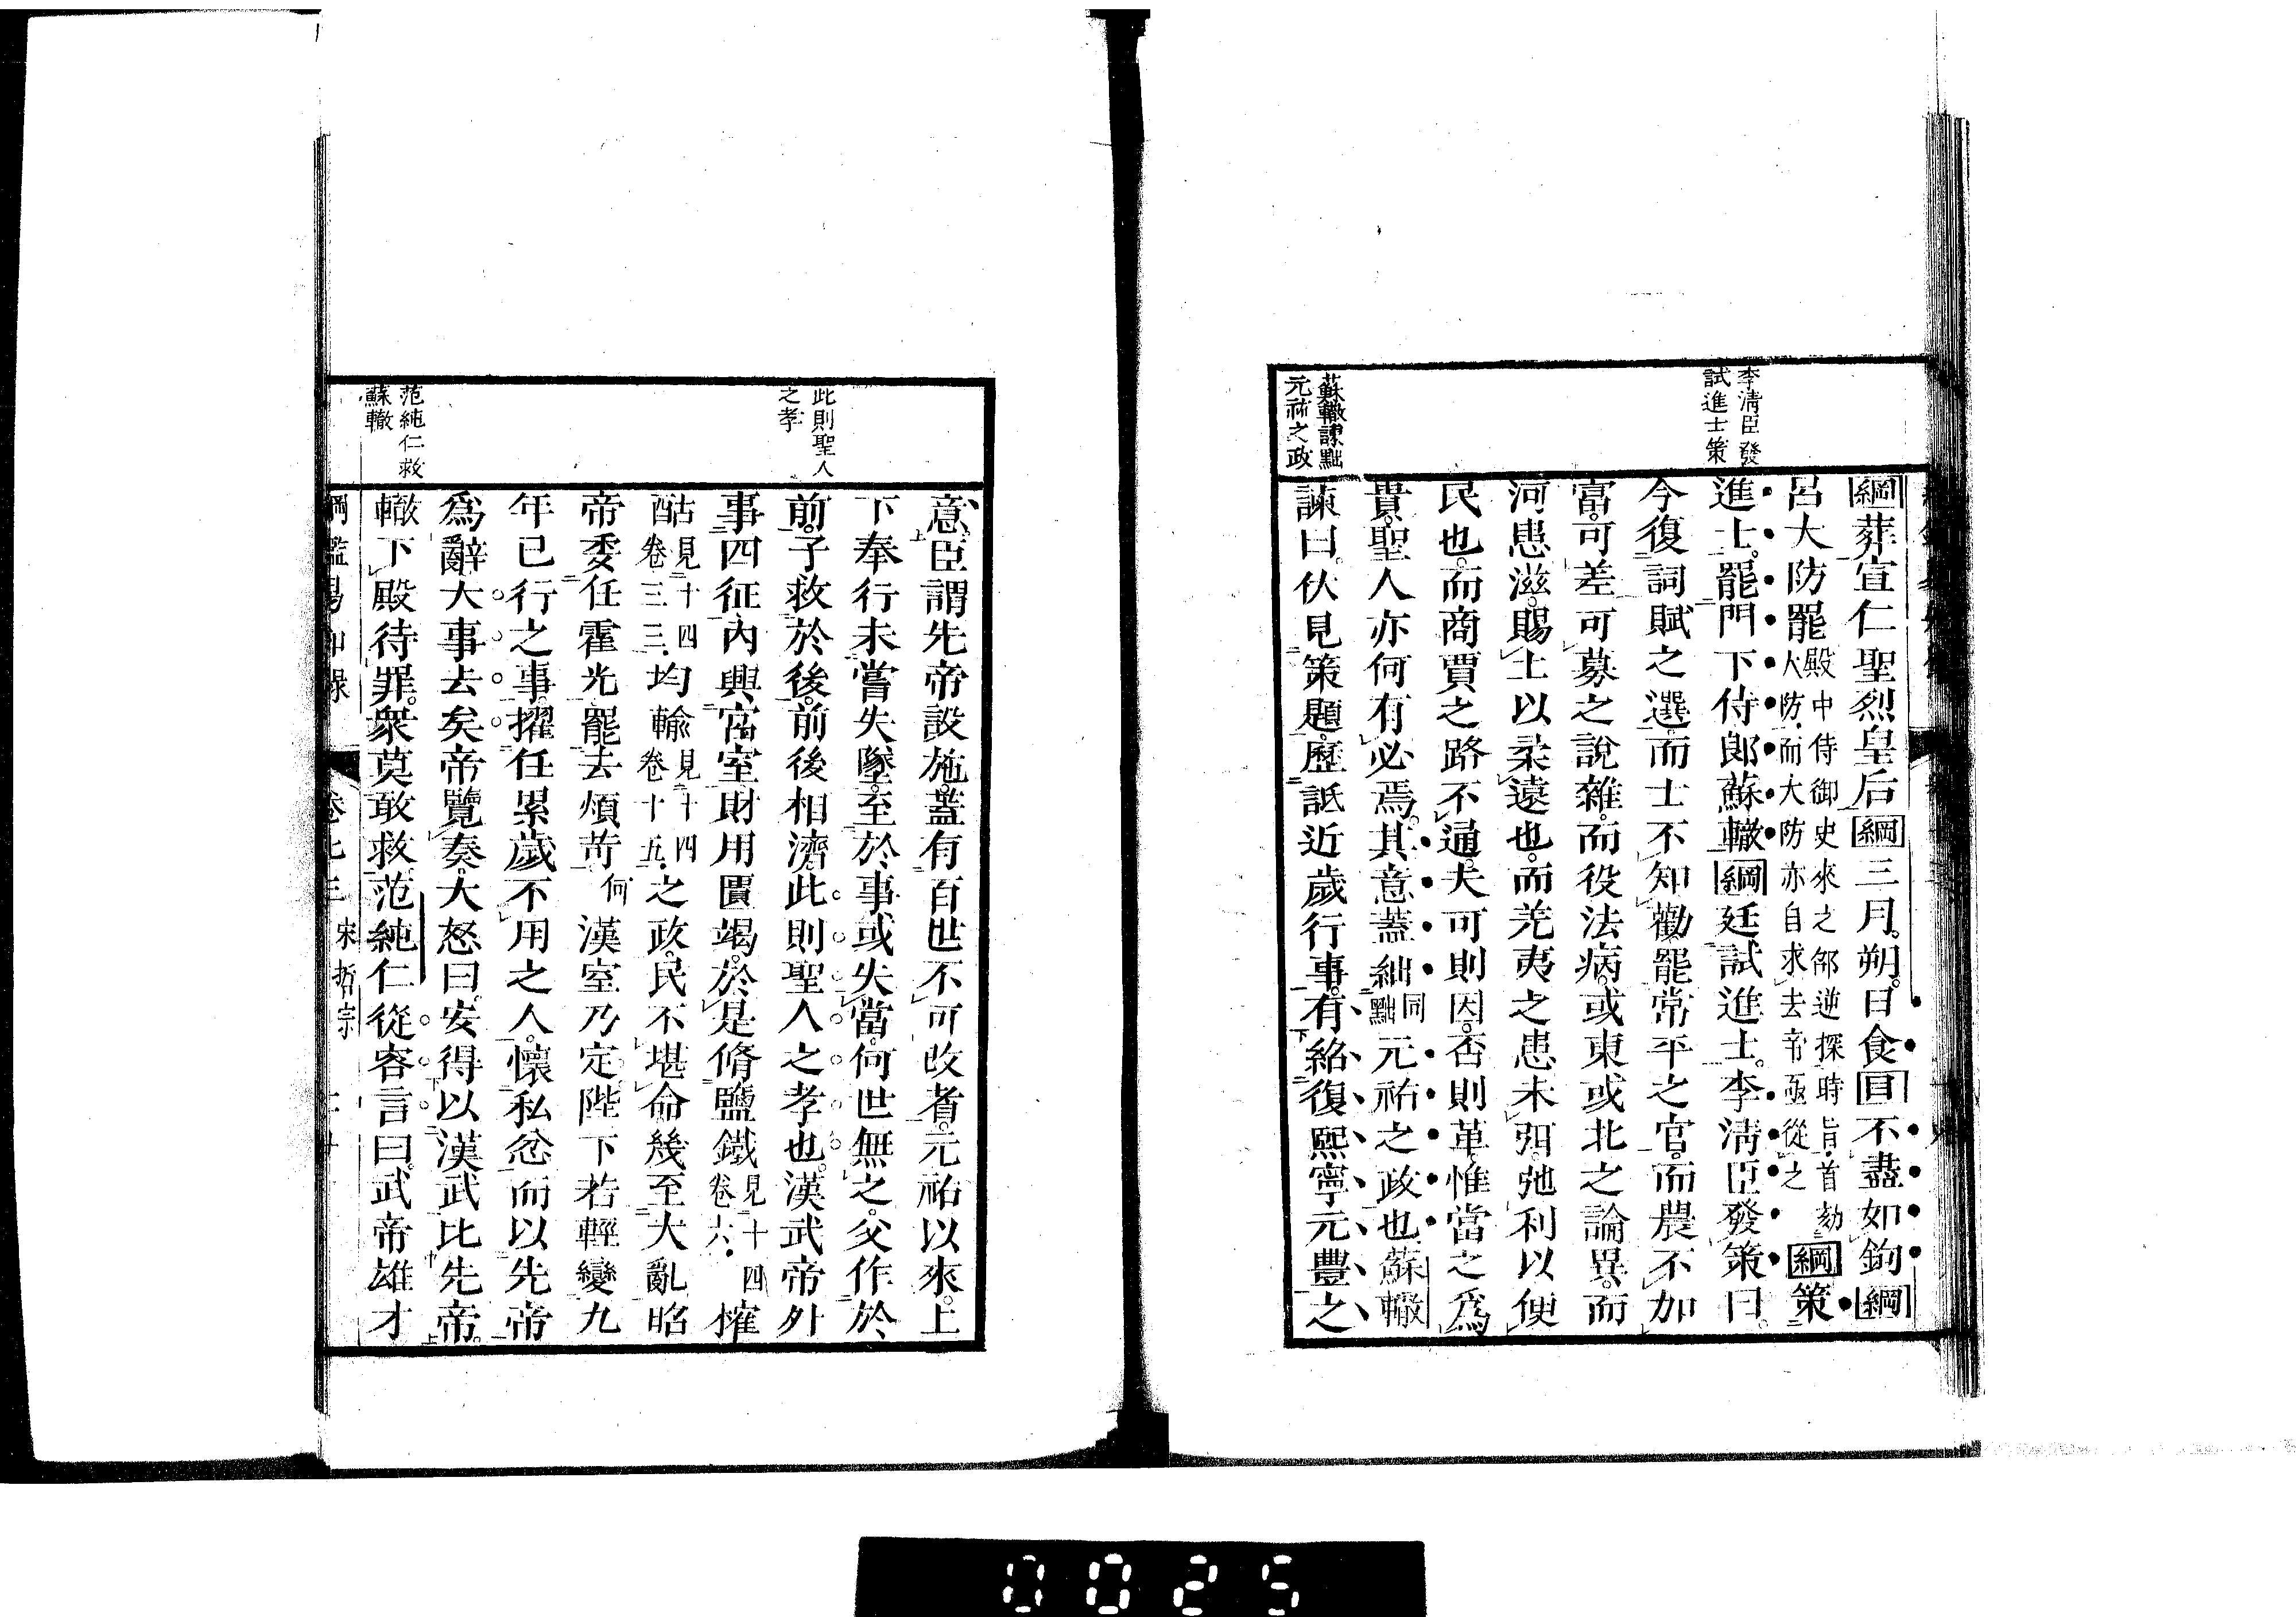 李清臣發
試進士策
蘇轍諫黜
元祐之政
綱葬宣仁聖烈皇后綱三月朔日食目不盡如鉤綱
呂大防罷殿中侍御史來之邵逆探時旨首劾大防而大防亦自求去帝亟從之綱策
進士罷門下侍郎蘇轍綱廷試進士李清臣發策曰
今復詞賦之選而士不知勸罷常平之官而農不加
富可差可募之說雜而役法病或東或北之論異而
河患滋賜土以柔遠也而羌夷之患未弭弛利以便
民也而商賈之路不通夫可則因否則革惟當之爲
貴聖人亦何有必焉其意蓋絀同黜元祐之政也蘇轍
諫曰伏見策題歷詆近歲行事有紹復熙寧元豐之
此則聖人
之孝
范純仁救
蘇轍
意臣謂先帝設施蓋有百世不可改者元祐以來上
下奉行未嘗失墜至於事或失當何世無之父作於
前子救於後前後相濟此則聖人之孝也漢武帝外
事四征內興宮室財用匱竭於是脩鹽鐵見十四卷六榷
酤見十四卷三三均輸見十四卷十五之政民不堪命幾至大亂昭
帝委任霍光罷去煩苛何漢室乃定陛下若輕變九
年已行之事擢任累歲不用之人懷私忿而以先帝
爲辭大事去矣帝覽奏大怒曰安得以漢武比先帝
轍下殿待罪衆莫敢救范純仁從容言曰武帝雄才
綱鑑易知錄 卷七三 宋哲宗
0025